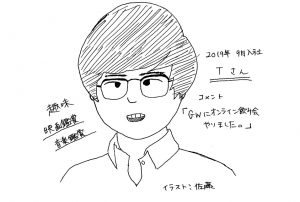 2019年 9月入社
Tさん
コメント
「GWにオンライン飲み会
やりました。」
趣味
映画鑑賞
音楽鑑賞
イラスト：佐藤